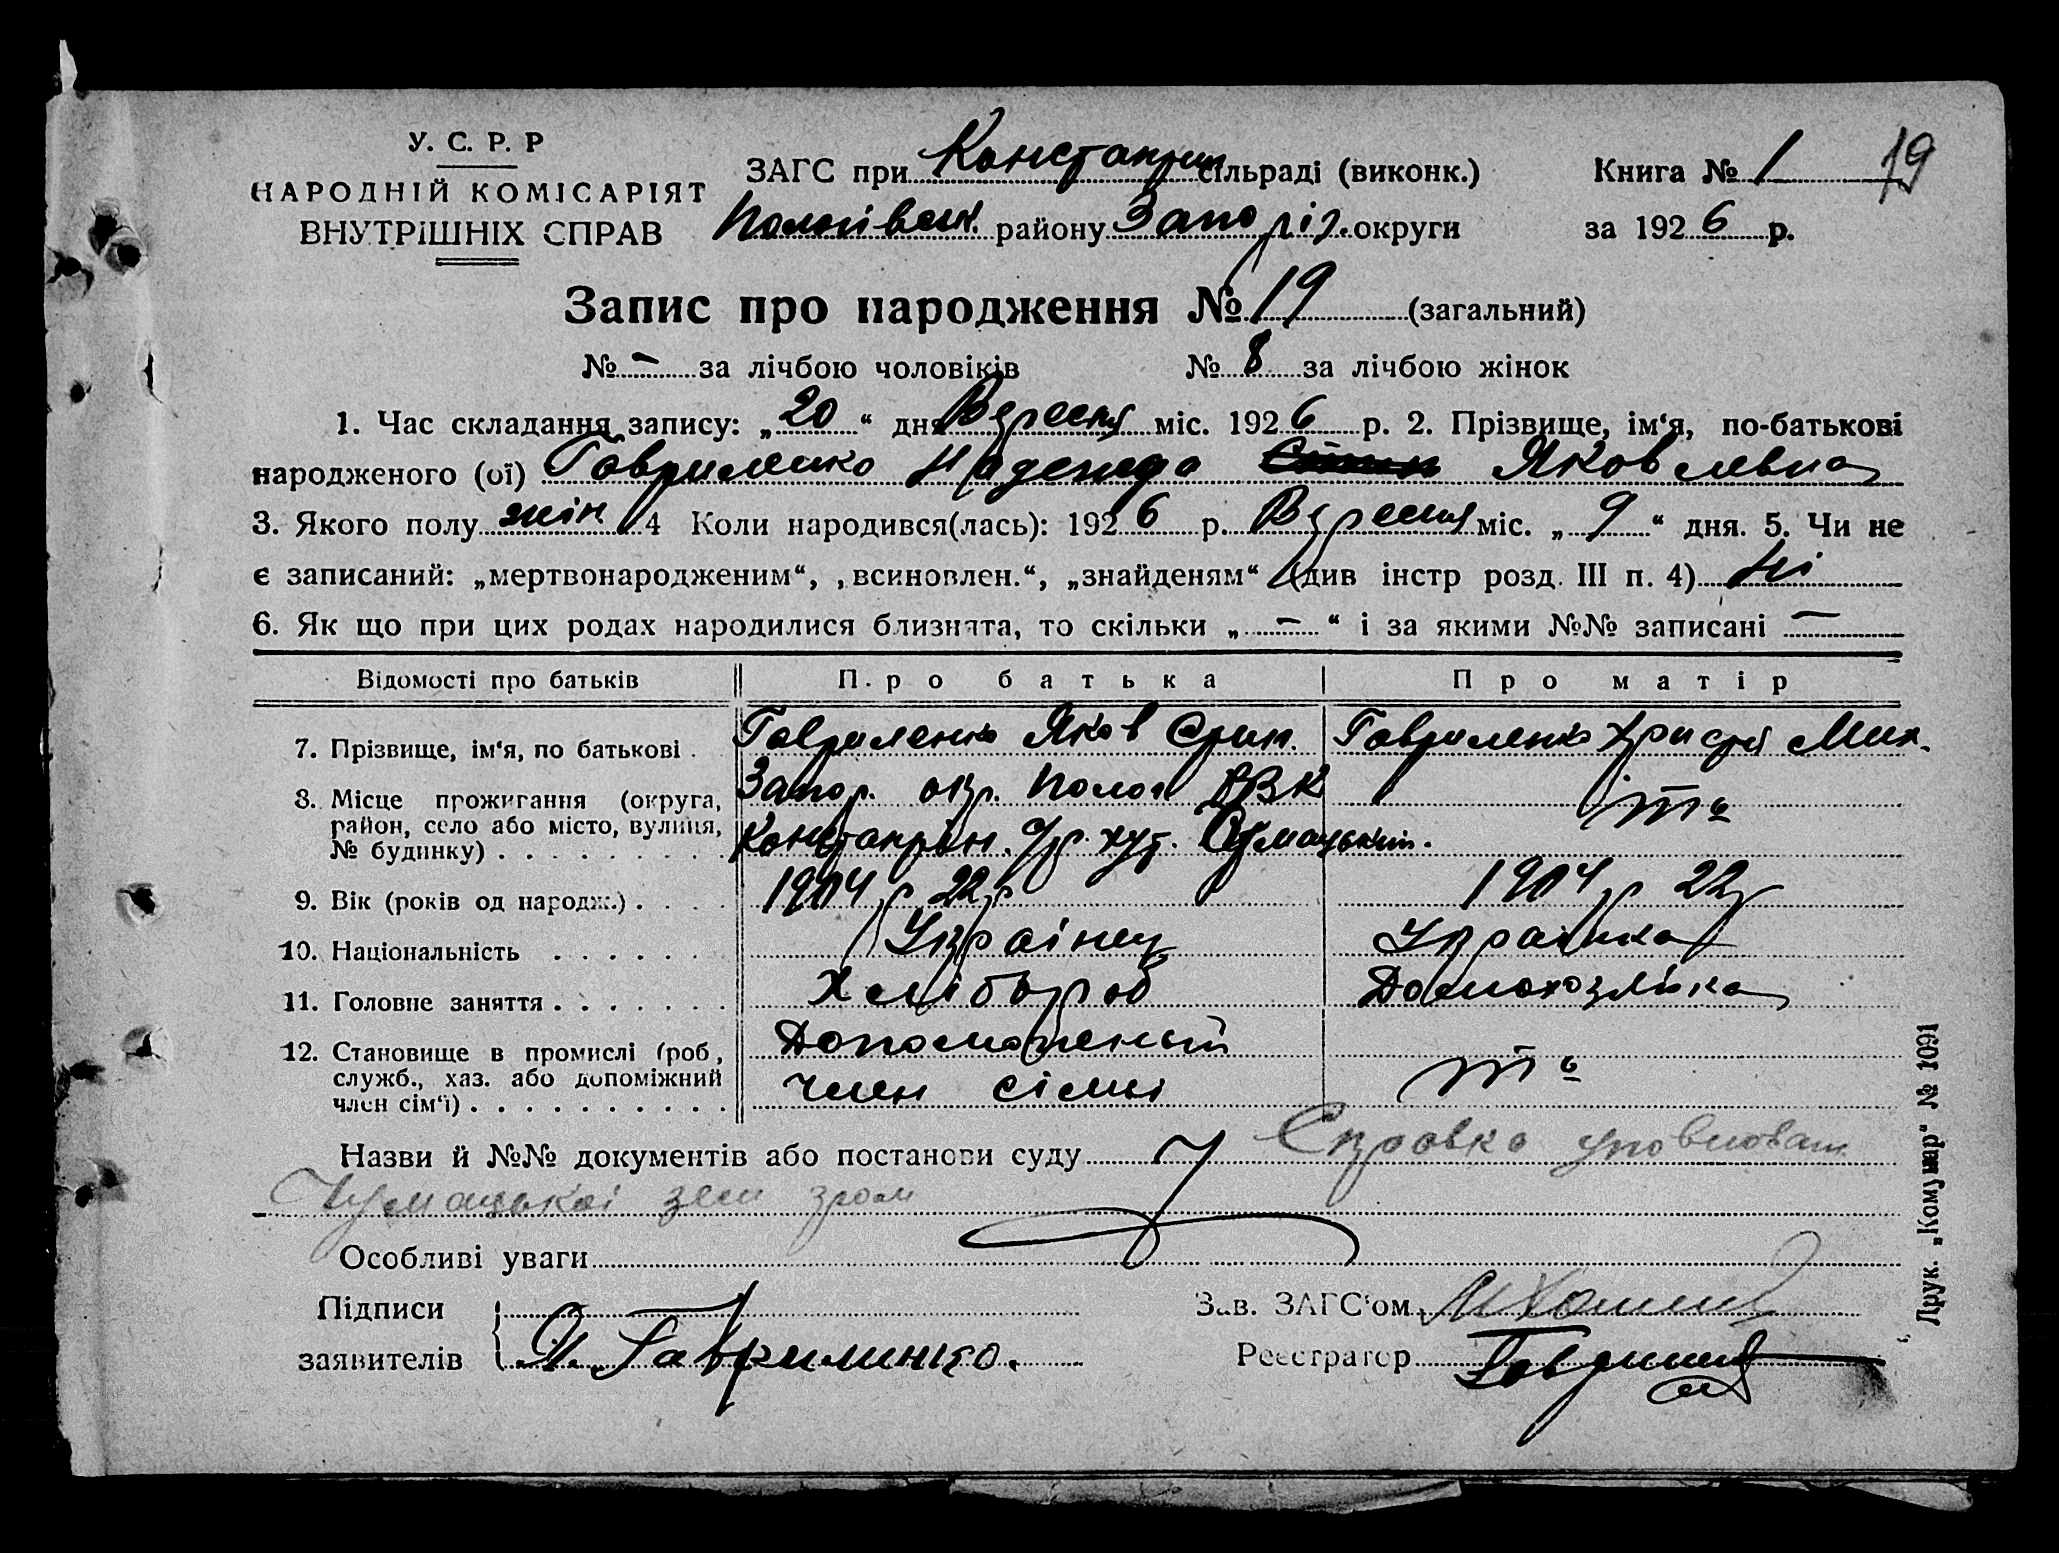 У. С. Р. Р
НАРОДНІЙ КОМІСАРІЯТ
ВНУТРІШНІХ СПРАВ
ЗАГС при Констанрин сільраді (виконк.)
Пологівськ. району Запоріз. округи
Книга № 1
19
за 1926 р.
Запис про народження № 19 (загальний)
№ – за лічбою чоловіків № 8 за лічбою жінок
1. Час складання запису: „20“ дня Вересня міс. 1926 р. 2. Прізвище, ім‘я, по-батькові
народженого (ої) Гавриленко Надежда Яковлевна
3. Якого полу жін. 4 Коли народився(лась): 1926 р. Вересня міс. „9“ дня. 5. Чи не
є записаний: „мертвонародженим“, „всиновлен.“, „знайденям“ (див інстр розд. III п. 4) Ні
6. Як що при цих родах народилися близнята, то скільки „–“ і за якими №№ записані –
Відомості про батьків Про батька Про матір
7. Прізвище, ім‘я, по батькові . Гавриленко Яков Гавриленко Христя Мих.
8. Місце прожигання (округа, Запор. окр. Полог РВК
район, село або місто, вулиця, то
№ будинку) . . . . . . . . . хут.
9. Вік (років од народж.) . . . . 1904 р 22 р 1904 р 22 р
10. Національність . . . . . . Українец Українка
11. Головне заняття . . . . . . . Хлібороб Домохозяйка
12. Становище в промислі (роб,
служб., хаз. або допоміжний член сімьі то
член сім‘ї) . . . . . . . . . . .
Назви й №№ документів або постанови суду Справка уповноваж
Чумацькоі зем гром
Особливі уваги
Підписи
заявителів Я. Гаврилинко.
Зав. ЗАГС‘ом
Реєстратор
Друк. „Комунар“ № 1091